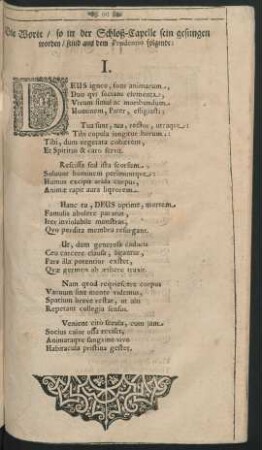 Die Worte / so in der Schloß-Capelle sein gesungen
worden / seind aus dem Prudentio folgende:
I.
DEUS ignee, fons animarum,
Duo qui socians elementa,
Vivum simul ac moribundum
Hominem, Pater, effigiasti;
Tua sunt, tua, rector, utraque:
Tibi copula jungitur horum:
Tibi, dum vegetata cohærent,
Et Spiritus & caro servit.
Rescissa sed ista seorsum,
Solvunt hominem perimuntque:
Humus excipit arida corpus,
Animæ rapit aura liquorem.
Hanc tu, DEUS optime, mortem
Famulis abolere paratus,
Iter inviolabile monstras,
Quo perdita membra resurgant.
Ut, dum generosa caducis
Ceu carcere clausa, ligantur,
Pars illa potentior exstet,
Quæ germen ab æthere traxit.
Nam quod requiescere corpus
Vacuum sine mente videmus,
Spatium breve restat, ut alti
Repetant collegia sensus.
Venient cito secula, cum jam
Socius calor ossa revisat,
Animataque sanguine vivo
Habitacula pristina gestet.